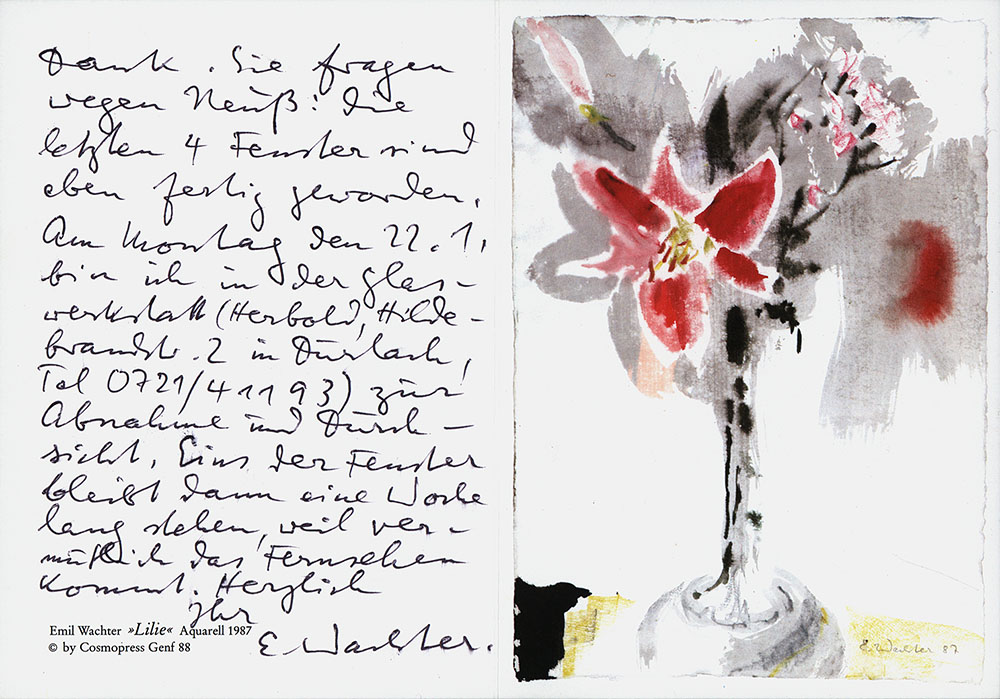 Dank. Sie fragen
wegen Neuß: die
letzten 4 Fenster sind
eben fertig geworden.
Am Montag den 22.1.
bin ich in der Glas-
werkstatt (Herbold, Hilde-
brandstr. 2 in Durlach,
Tel 0721/41193) zur
Abnahme und Durch-
sicht. Eins der Fenster
bleibt dann eine Woche
lang stehen, weil ver-
mutlich das Fernsehen
kommt. Herzlich
Ihr
E. Wachter.
Emil Wachter »Lilie« Aquarell 1987
© by Cosmopress Genf 88
E Wachter 87